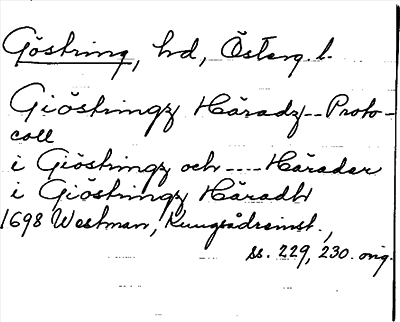 Göstring, hd, Österg. l.
Giöstringz Häradz--Proto-
coll
i Giöstringz och ---- Härader
i Giöstringz Häradh
1698 Westman, Kungsådreinst.,
ss. 229, 230. orig.